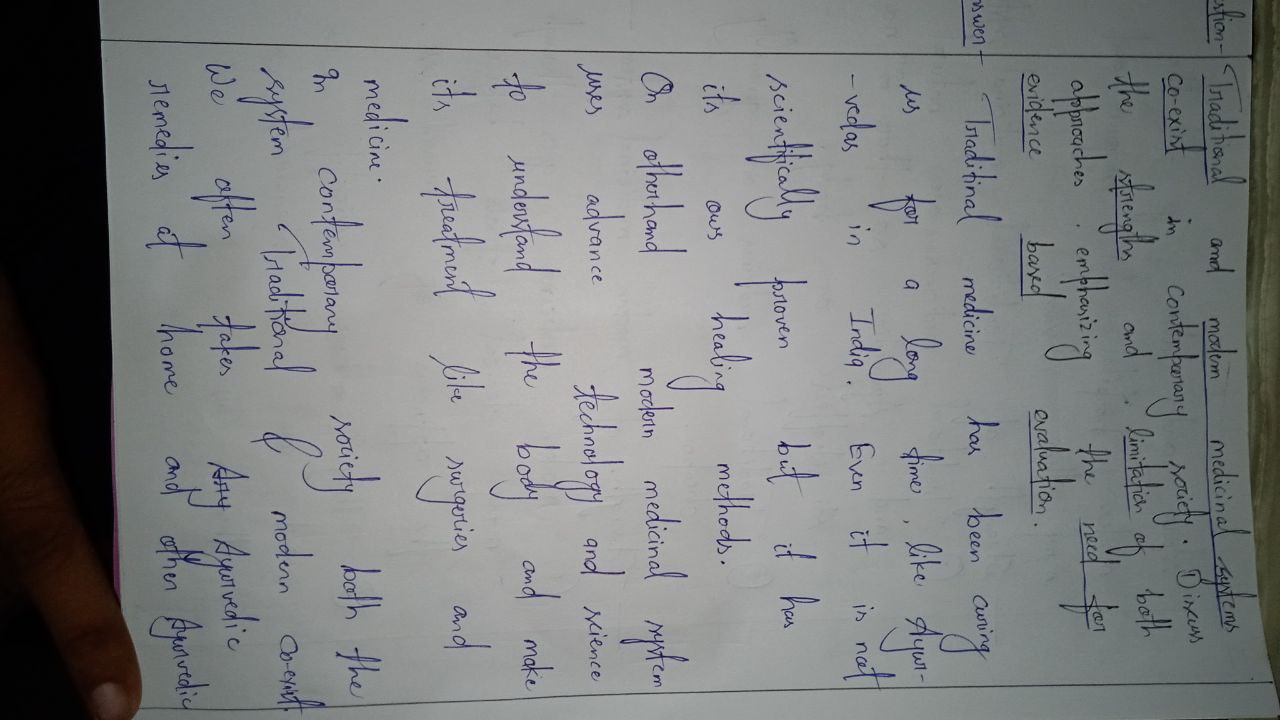 Traditional and modern medicinal systems
co-exist in contemporary society. Discuss
the strengths and limitation of both
approaches, emphasizing the need for
evidence based evaluation.
Traditinal medicine has been curing
us for a long time, like Ayur-
-vedas in India. Even it is not
scientifically proven but it has
its ows healing methods.
On otherhand modern medicinal system
uses advance technology and science
to understand the body and make
its treatment like surgeries and
medicine.
In contemporary society both the
system Traditional & modern co-exist.
We often takes Ayurvedic
remedies at home and other Ayurvedic